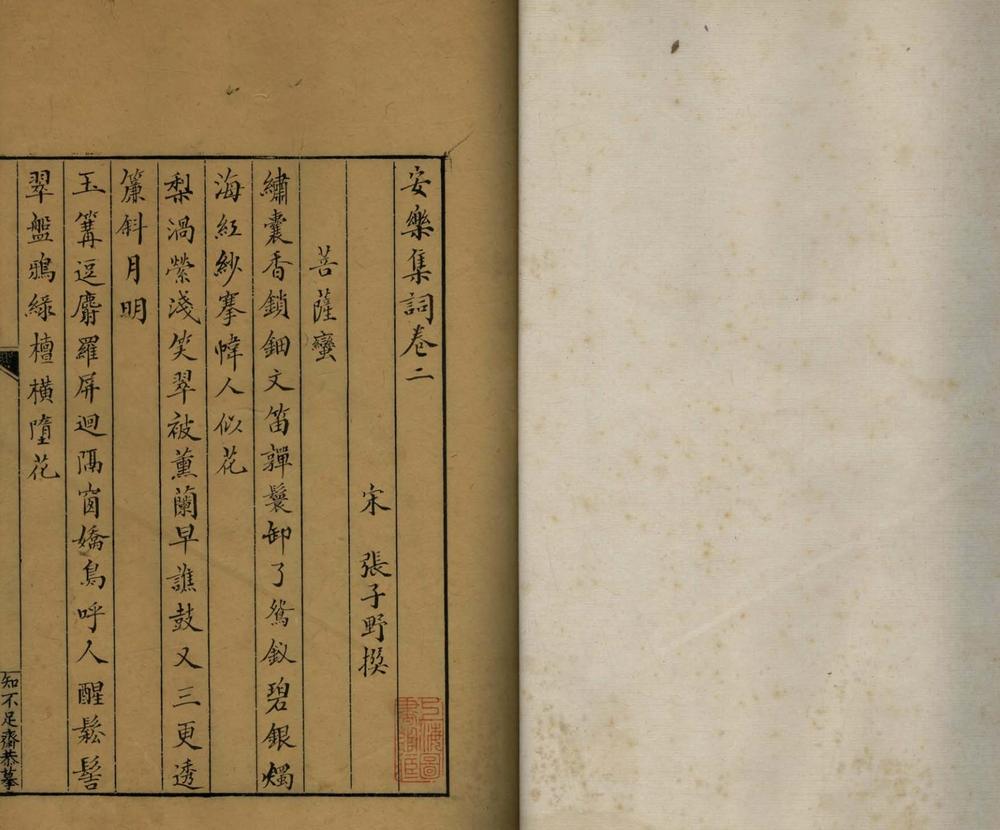 安樂集詞卷二
宋 張子野撰
菩薩蠻
繡囊香鎖鈿文笛嚲鬟卸了鴛釵碧銀燭
海紅紗搴幃人似花
梨渦縈淺笑翠被薰蘭早譙鼓又三更透
簾斜月明
玉篝逗麝羅屏迴隔窗嬌鳥呼人醒鬆髻
翠盤鴉綠檀橫墮花
知不足齋恭摹